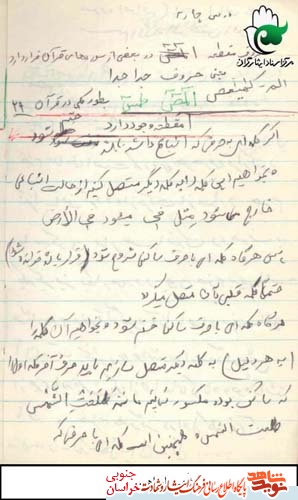 درس چهارم
حروف مقطعه المص در بعضی از سوره های قرآن قرار دارد
یعنی حروف جدا جدا
الم - کهیعص المص طس بطور کلی در قرآن ۲۹
مقطعه وجود دارد
اگر کلمه ای حرفی که اشباع داشته باشد ختم شود
و بخواهیم این کلمه را به کلمه دیگر متصل کنیم از حالت اشباعی
خارج می شود مثل فی میشود فی الأرض
پس هرگاه کلمه ای با حرف ساکنی شروع شود (قرار باشد خوانده شود)
حتماً کلمه قبلی بآن متصل میگردد
هرگاه کلمه ای با حرف ساکنی ختم شود و بخواهیم آن کلمه را
(به هر دلیل) به کلمه دیگر متصل سازیم باید حرف آخر کلمه اول را
که ساکن بوده مکسور نمائیم مانند طلعت الشمس
طلعت الشمس و همچنین است کلمه ای با حرفی که
مرکز اسناد ایثارگران
نوید شاهد
پایگاه اطلاع رسانی فرهنگ ایثار و شهادت
خراسان جنوبی